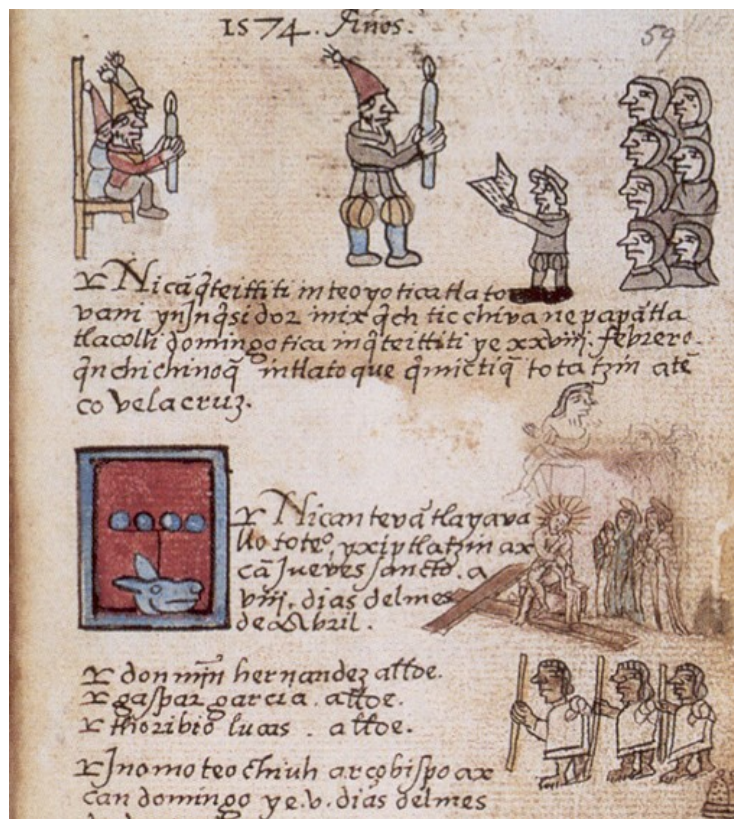 1574. Años.
59
Nicā q̄teittiti in teoyotica tlato
vani yn Inq̄sidor mixq̄ch tic chiva nepapātla
tlacolli domingotica in q̄teittiti ye xxviij. febrero.
q̄nchichinoq̄ intlatoque q̄mictiq̄ totatzin atē
co velacruz.
Nican tevā tlayava
llo toteo, yxiptlatzin ax
cā Jueves sancto. a
viij. dias del mes
de Abril.
don min̄ hernandez allde.
gaspar garcia. allde.
thoribio lucas. allde.
Inomoteochiuh arçobispo ax
can domingo ye. v. dias del mes